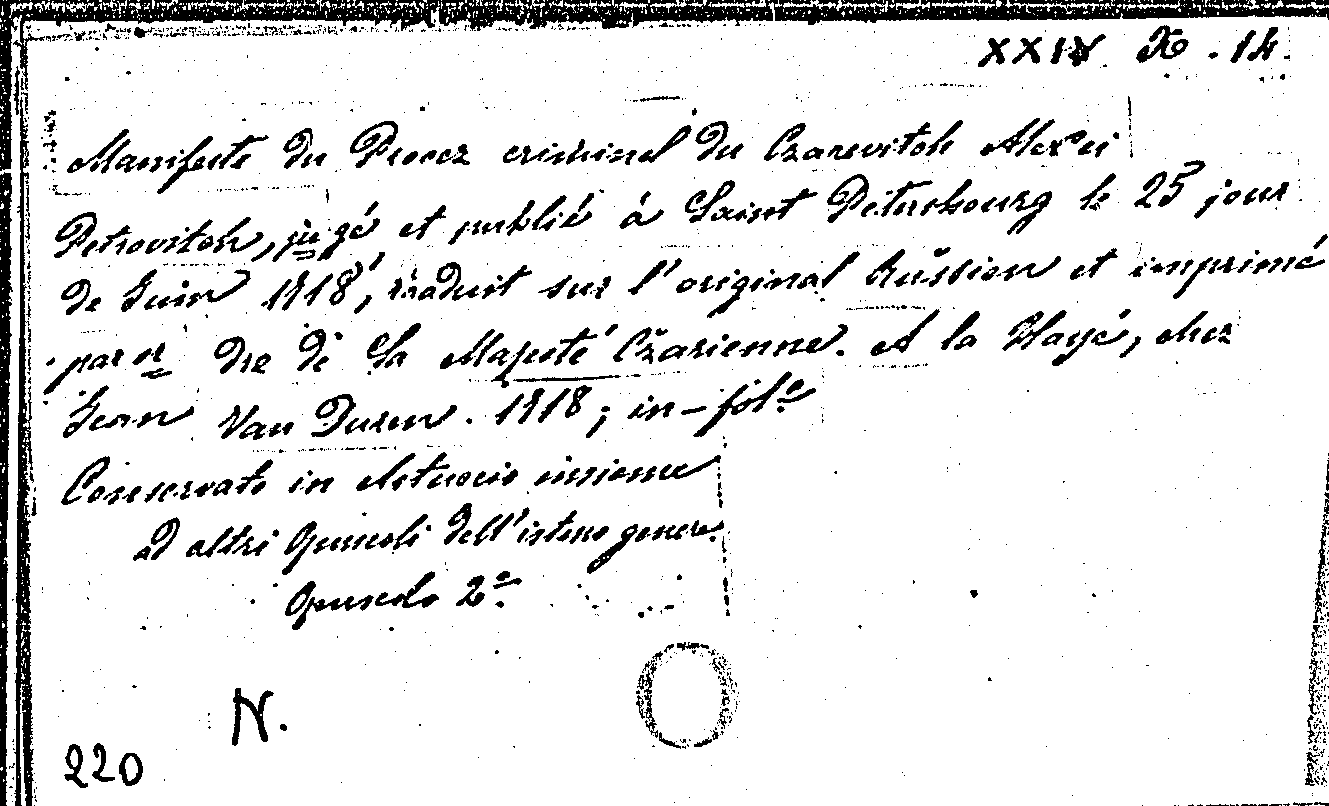 XXIV X . 14.
Manifeste du Procez criminel du Czarevitch Alexei
Petrovitch, jugé et publié à Saint Pétersbourg le 25 jour
de Juin 1718, traduit sur l'original Russien et imprimé
par or dre de Sa Majesté Czarienne. A la Haye, chez
Jean Van Duren. 1718; in-fol.º
Conservato in Astuccio insieme
ad altri Opuscoli dell'istesso genere.
Opuscolo 2º.
N.
220